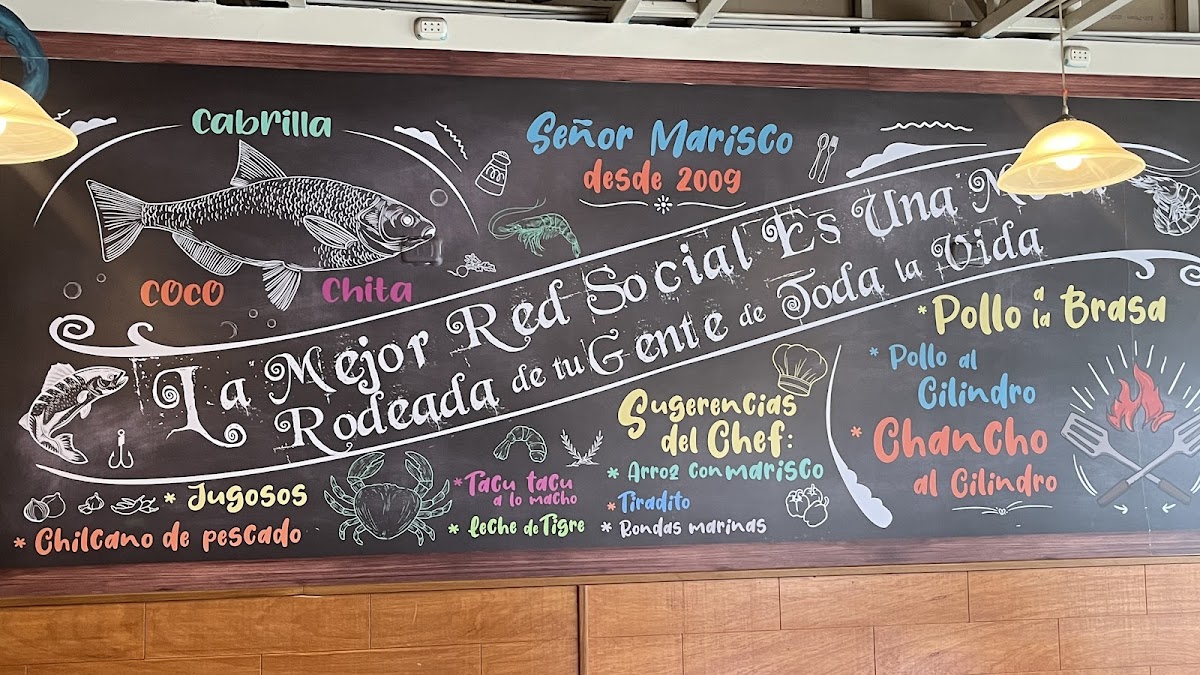 Cabrilla
Coco
Chita
Señor Marisco
desde 2009
"La "Mejor Red Social" Es Una
Rodeada de tu Gente de Toda la Vida
* Jugosos
* Chilcano de pescado
* Tacu tacu
a lo macho
* leche de Tigre
Sugerencias
del Chef:
* Arroz con marisco
* Tiradito
* Rondas marinas
* Pollo a la Brasa
* Pollo al
Cilindro
* Chancho
al Cilindro